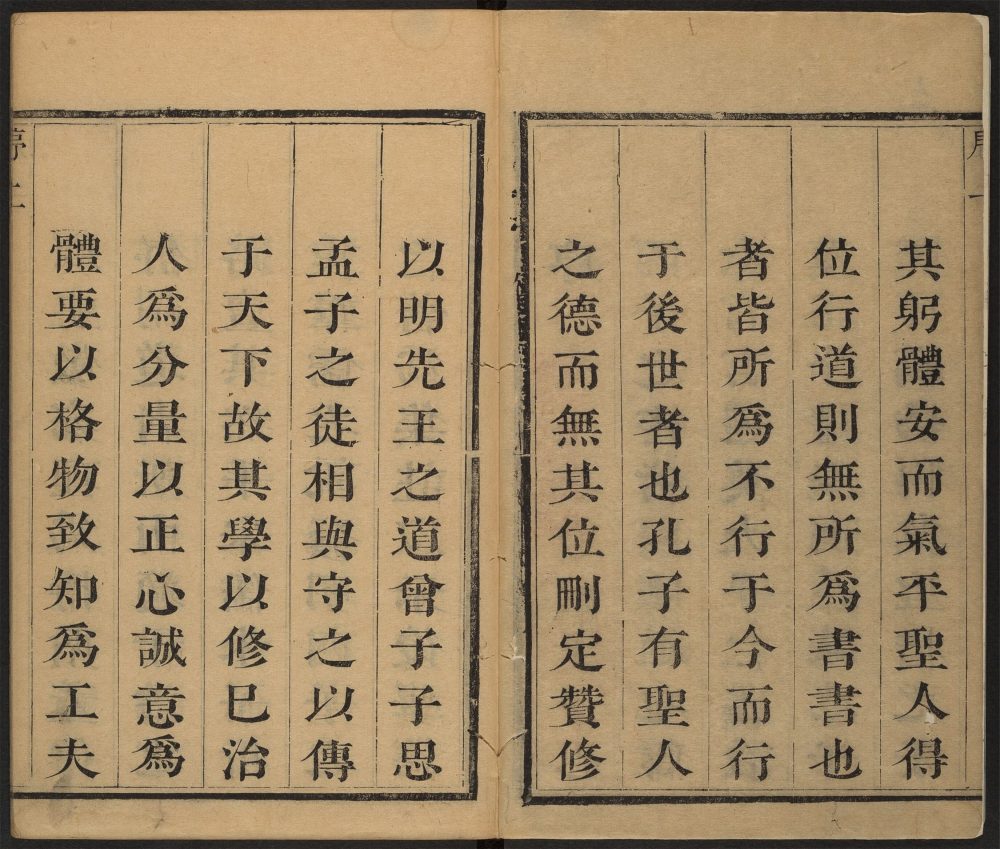 其躬體安而氣平聖人得
位行道則無所爲書書也
者皆所爲不行于今而行
于後世者也孔子有聖人
之德而無其位刪定贊修
以明先王之道曾子子思
孟子之徒相與守之以傳
于天下故其學以修巳治
人爲分量以正心誠意爲
體要以格物致知爲工夫